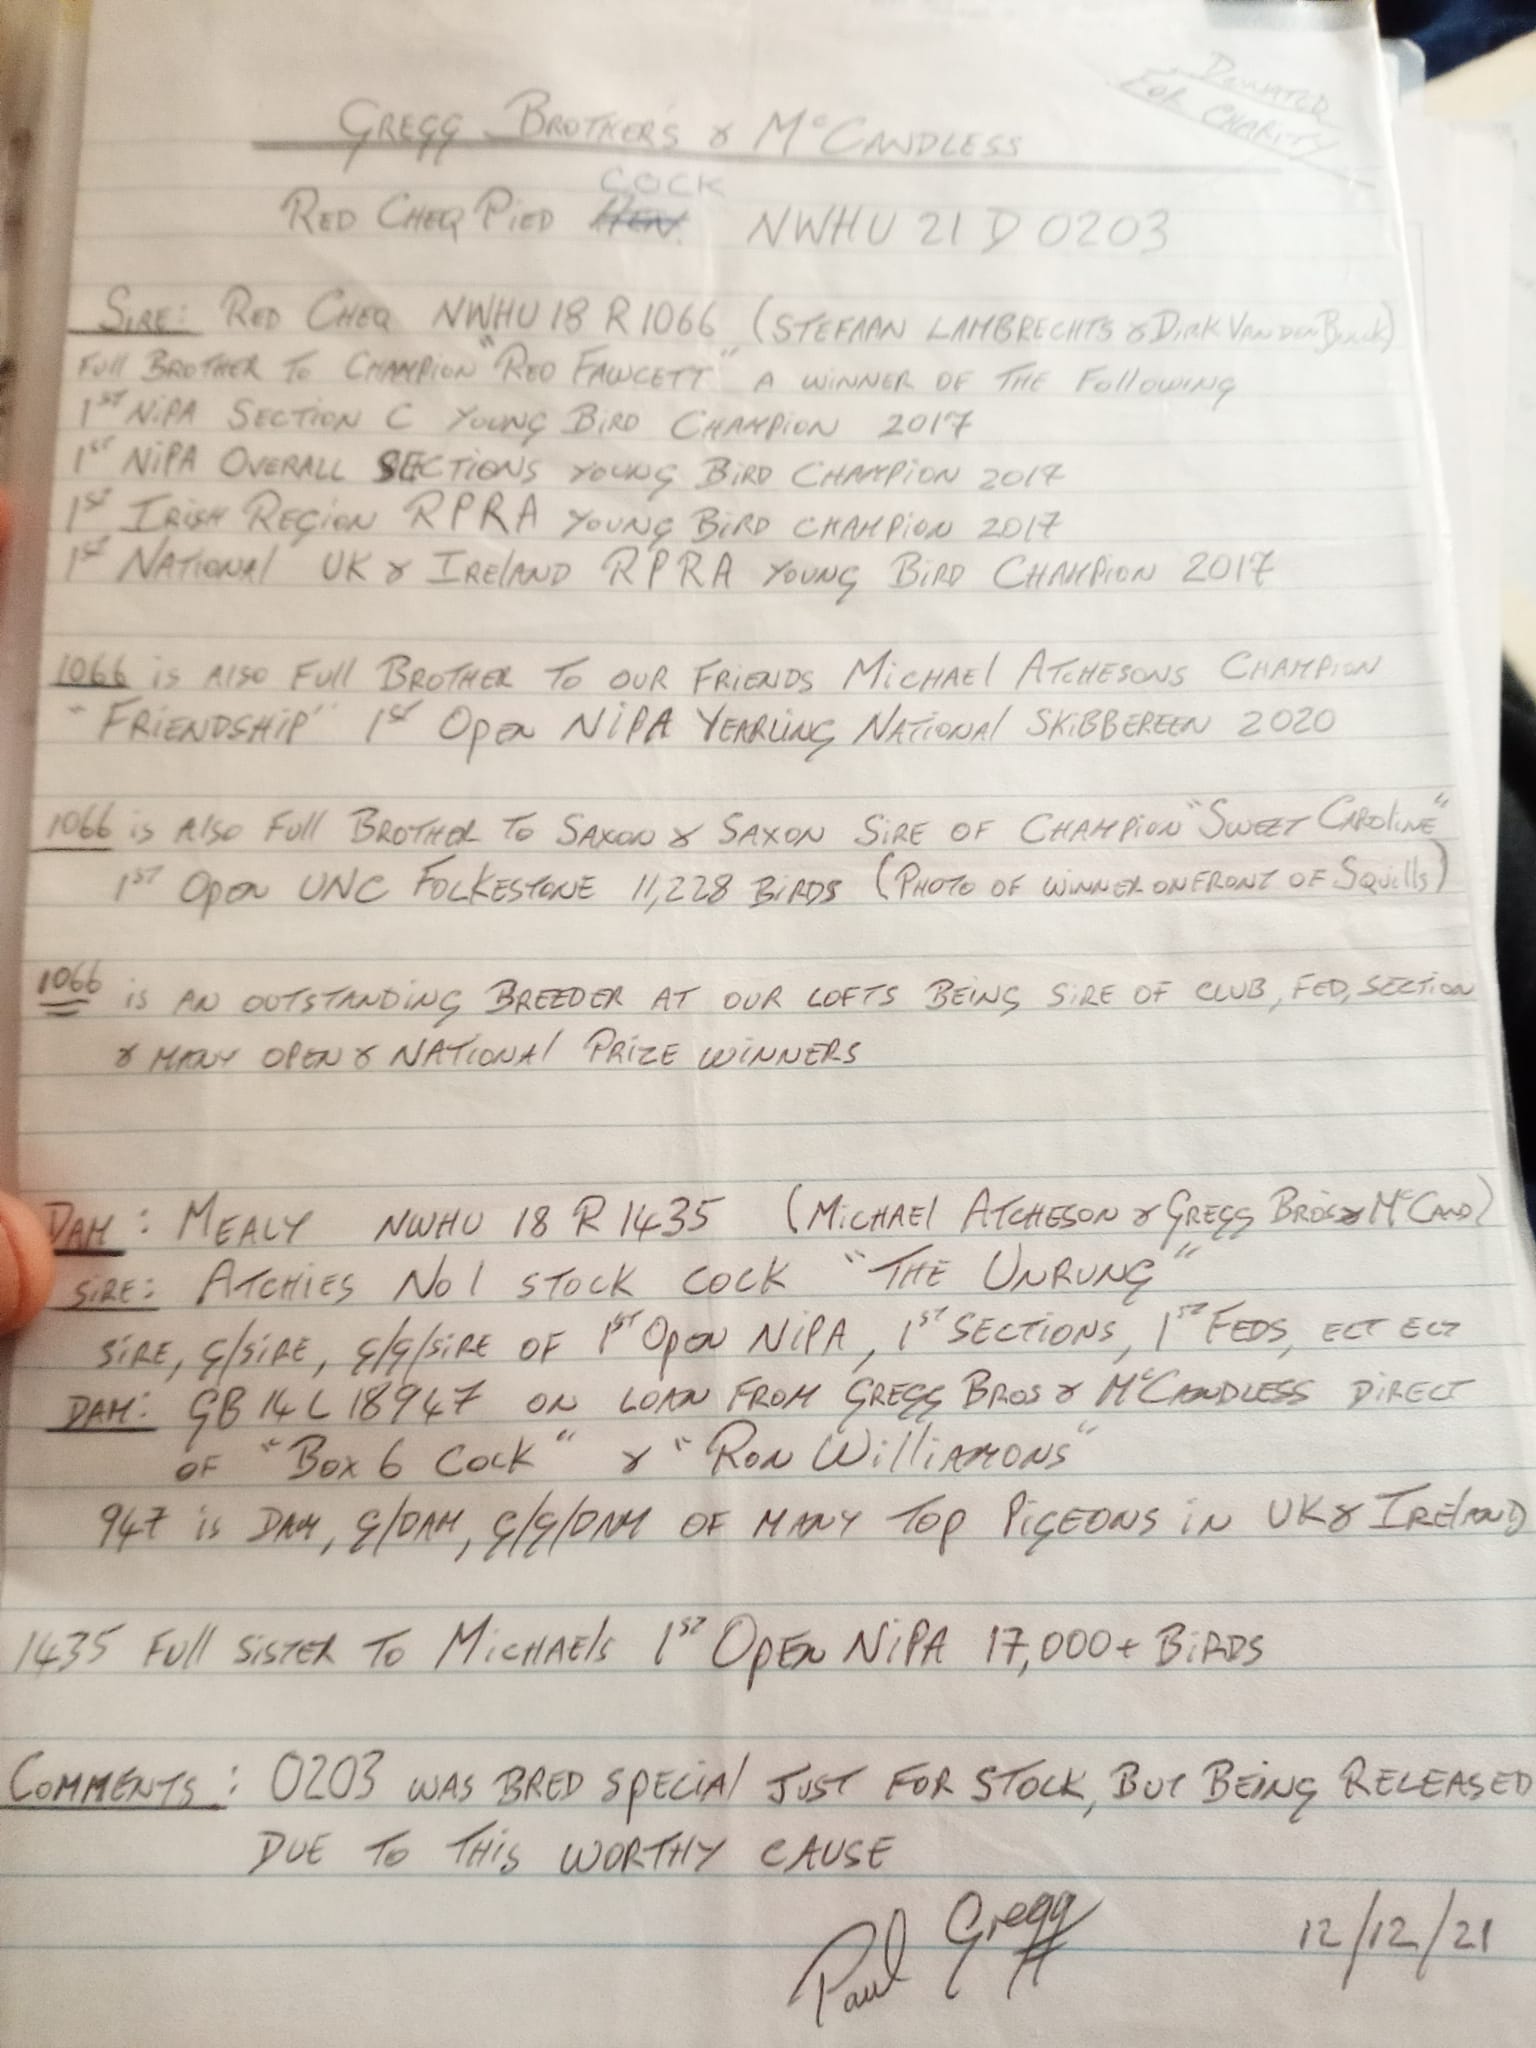 DONATED
FOR CHARITY
GREGG BROTHERS & McCANDLESS
COCK
RED CHEQ PIED HEN. NWHU 21 D 0203
SIRE: RED CHEQ NWHU 18 R 1066 (STEFAAN LAMBRECHTS & DIRK VAN DEN BULCK)
FULL BROTHER TO CHAMPION "RED FAWCETT" A WINNER OF THE FOLLOWING
1ST NIPA SECTION C YOUNG BIRD CHAMPION 2017
1ST NIPA OVERALL SECTIONS YOUNG BIRD CHAMPION 2017
1ST IRISH REGION RPRA YOUNG BIRD CHAMPION 2017
1ST NATIONAL UK & IRELAND RPRA YOUNG BIRD CHAMPION 2017
1066 is ALSO FULL BROTHER TO OUR FRIENDS MICHAEL ATCHESONS CHAMPION
"FRIENDSHIP" 1ST OPEN NIPA YEARLING NATIONAL SKIBBEREEN 2020
1066 is ALSO FULL BROTHER TO SAXON & SAXON SIRE OF CHAMPION "SWEET CAROLINE"
1ST OPEN UNC FOLKESTONE 11,228 BIRDS (PHOTO OF WINNER ON FRONT OF SQUILLS)
1066 is AN OUTSTANDING BREEDER AT OUR LOFTS BEING SIRE OF CLUB, FED, SECTION
& MANY OPEN & NATIONAL PRIZE WINNERS
DAM: MEALY NWHU 18 R 1435 (MICHAEL ATCHESON & GREGG BROS & McCAND)
SIRE: ATCHIES NO1 STOCK COCK "THE UNRUNG"
SIRE, G/SIRE, G/G/SIRE OF 1ST OPEN NIPA, 1ST SECTIONS, 1ST FEDS, ECT ECT
DAM: GB 14 L 18947 ON LOAN FROM GREGG BROS & McCANDLESS DIRECT
OF "BOX 6 COCK" & "RON WILLIAMONS"
947 is DAM, G/DAM, G/G/DAM OF MANY TOP PIGEONS IN UK & IRELAND
1435 FULL SISTER TO MICHAELS 1ST OPEN NIPA 17,000+ BIRDS
COMMENTS: 0203 WAS BRED SPECIAL JUST FOR STOCK, BUT BEING RELEASED
DUE TO THIS WORTHY CAUSE
Paul Gregg 12/12/21